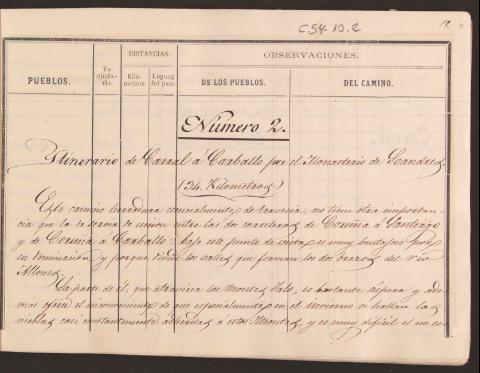 C54-10.2
18
DISTANCIAS.
OBSERVACIONES.
PUEBLOS.
Ve-
cinda-
rio.
Kiló-
metros.
Leguas
del país.
DE LOS PUEBLOS.
DEL CAMINO.
Número 2.
Itinerario de Carral á Carballo por el Monasterio de Soandres
(34. Kilometros.)
Este camino herradura esencialmente de travesia, no tiene otra importan-
cia que la de servir de union entre las dos carreteras de Coruña á Santiago
y de Coruña á Carballo: bajo este punto de vista, es muy ventajoso por
su dominacion y porque divide los valles que forman los dos brazos del río
Allones.
La parte de el, que atraviesa los Montes Xalo, es bastante áspera y ade-
mas ofrece el inconveniente de que especialmente en el invierno se hallan las
nieblas casi constantemente adheridas á estos Montes, y es muy difícil el no es-